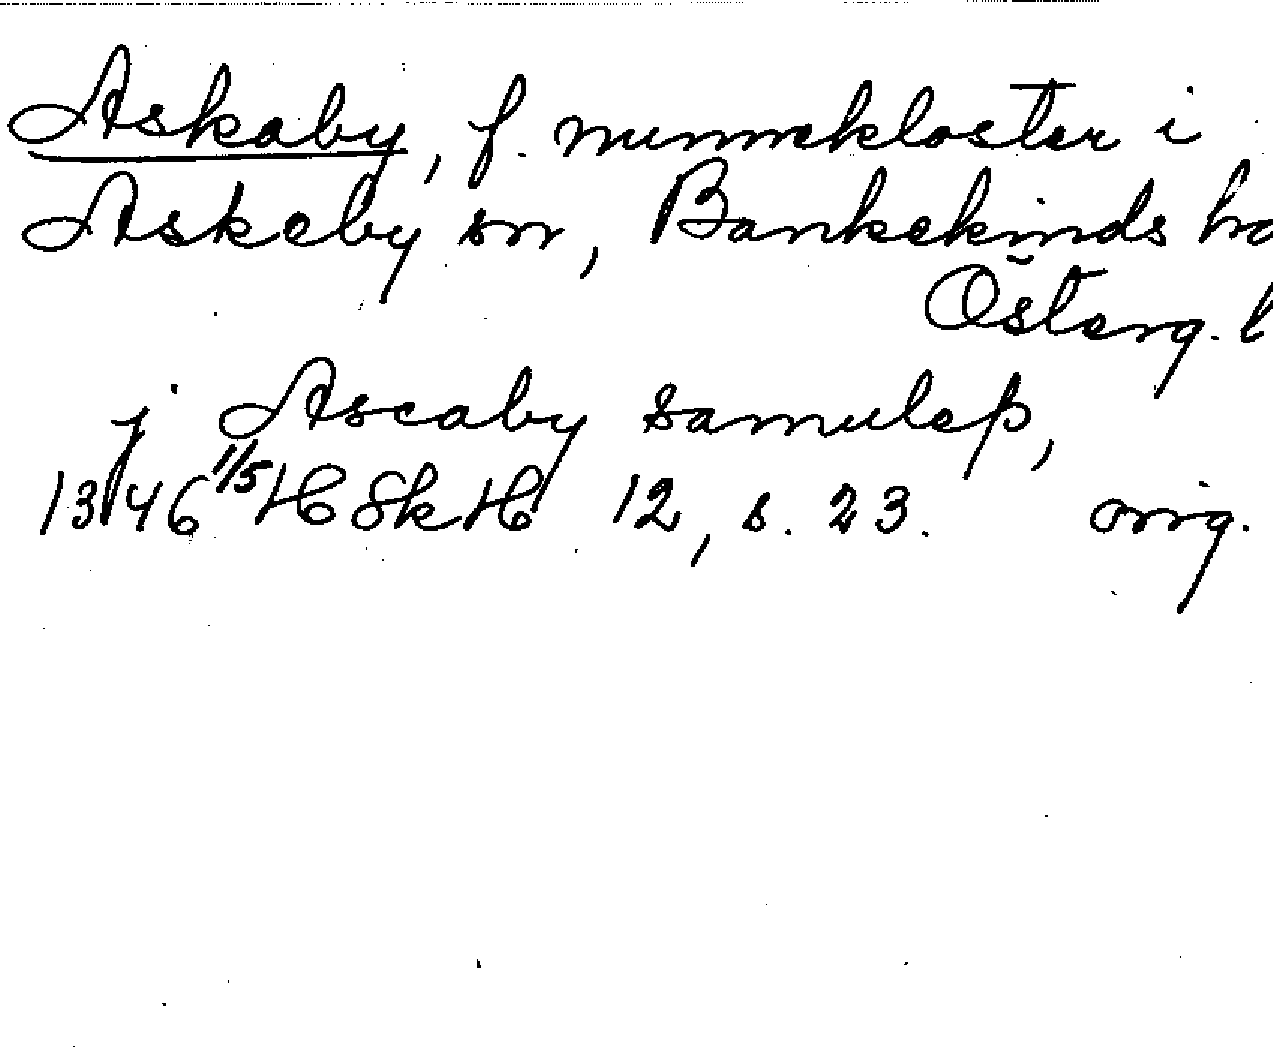 Askaby, f. nunnekloster i
Askeby sn, Bankekinds hd
Österg. l
j Ascaby samulep,
1346 1/5 HSkH 12, s. 23. orig.